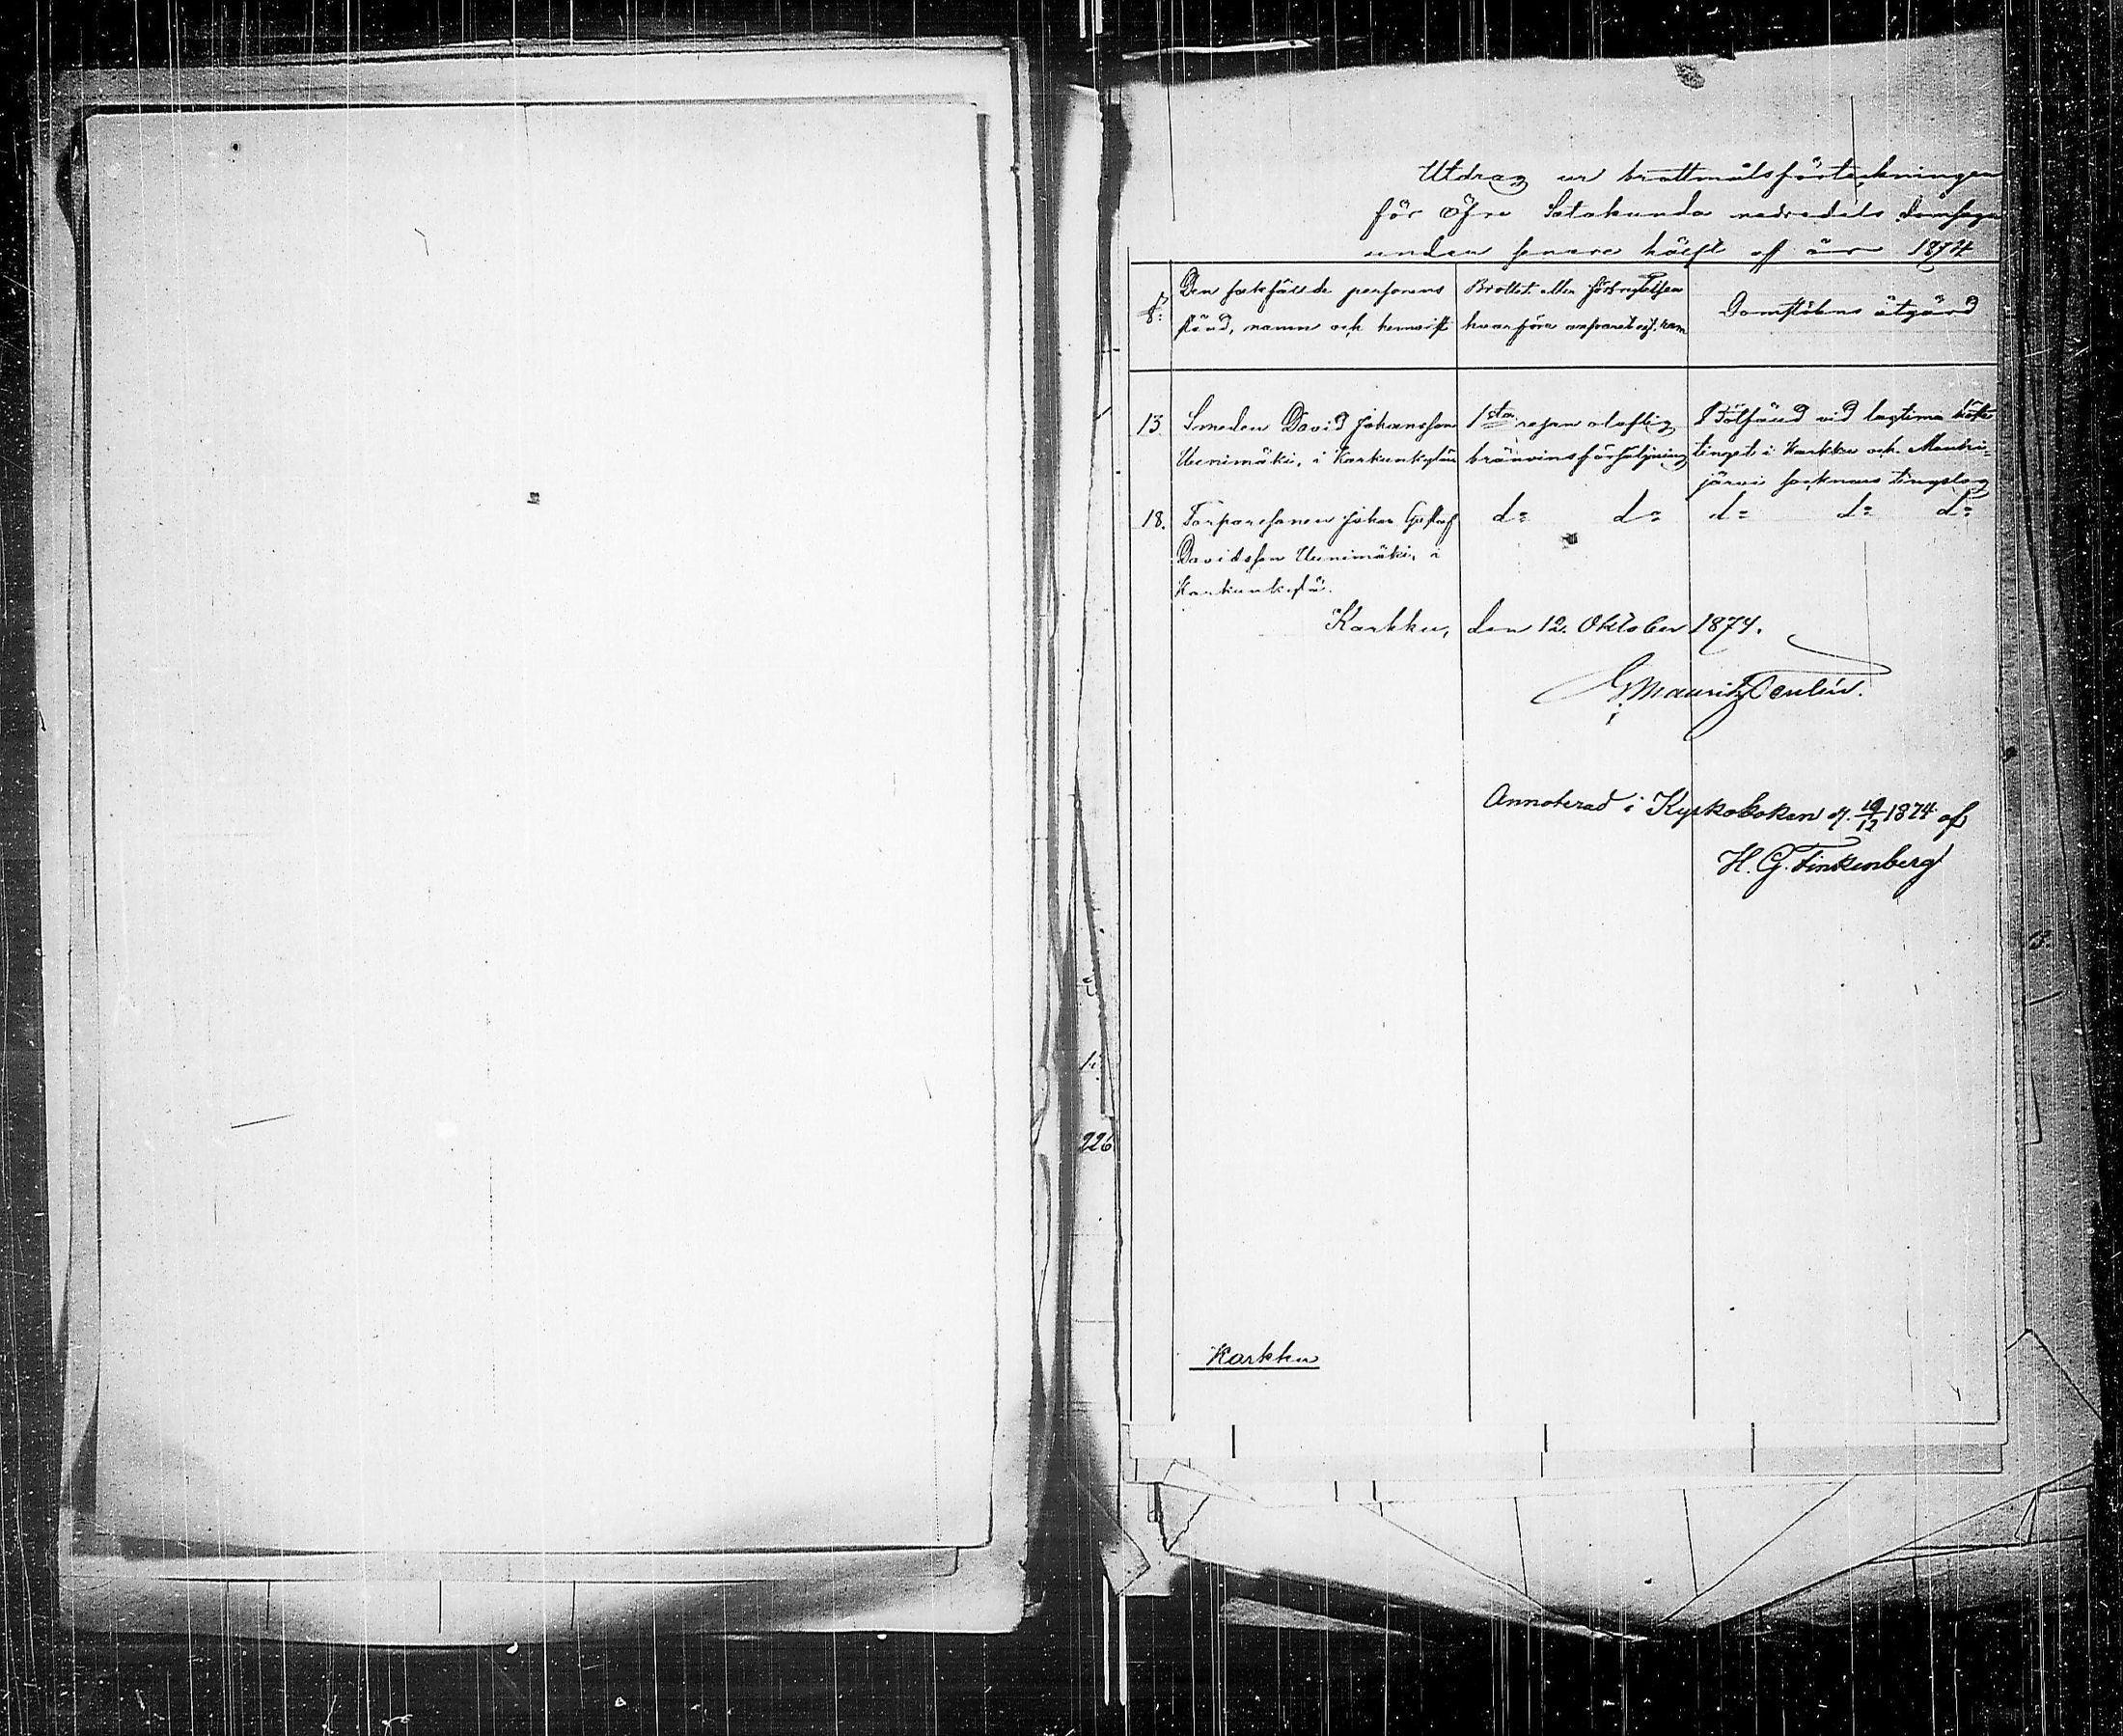 Utdrag ur brottmålsförteckningen
för Öfre Satakunda nedredels domsaga
under senare hälft af år 1874
Den sakfällde persons
stånd, namn och hemvist
Brottet eller förbrytelsen
hvarföre
Domstolens åtgärd
13 Smeden David Johansson
Uunimäki, i Karkunkylä
1sta resan olaflig
bränvinsförsäljning
Botfäld vid lagtima höste
tinget i Karkku och Mouhi-
järvi socknars tingslag
18. Torparesonen Johan Gustaf
Davidsson Uunimäki, i
Karkunkylä.
d:o d:o d:o d:o d:o
Karkku, den 12. Oktober 1874.
G. Mauritz
Annoterad i Kyrkoboken d. 19/12 1874 af
H. G. Finkenberg
Karkku
226